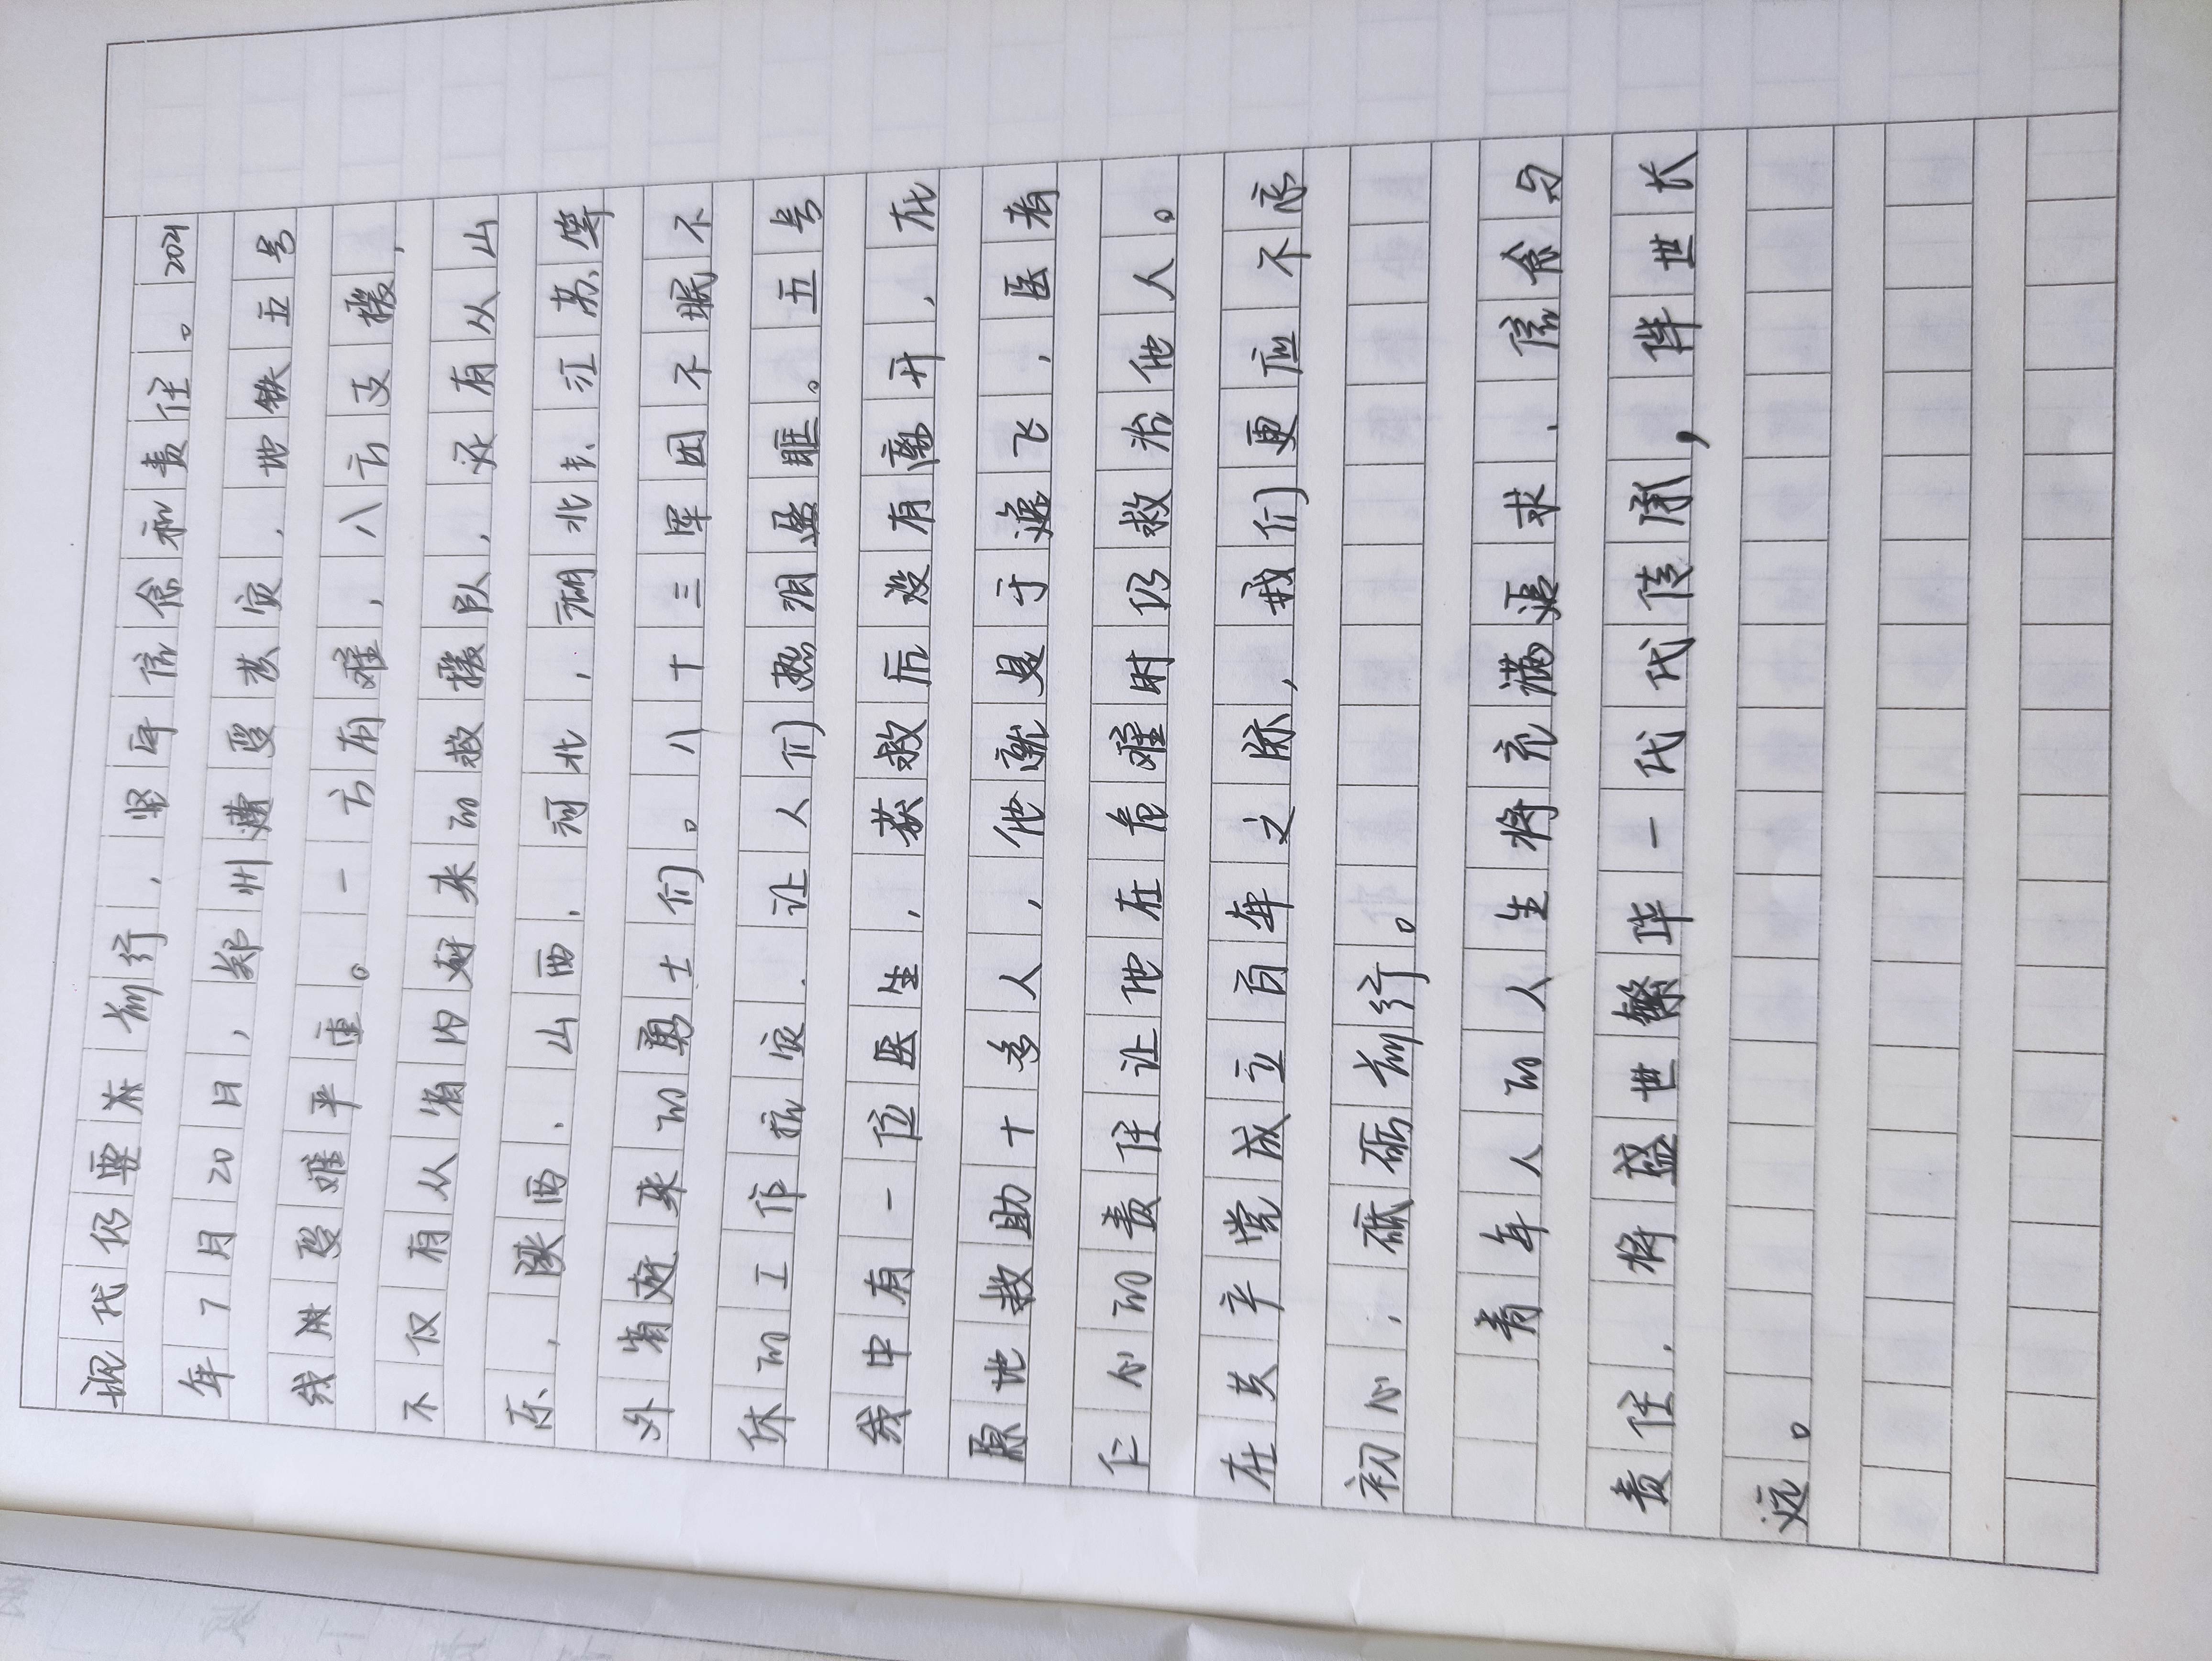 现代仍要奔前行，坚守信念和责任。2021
年7月20日，郑州遭受洪灾，地铁五号
线湃受难平重。一方有难，八方支援，
不仅有从省内赶来的救援队，还有从山
东、陕西、山西、河北，湖北、江苏等
外省赶来的勇士们。八十三军因不眠不
休的工作抗灾，让人们热泪盈眶。五号
线中有一位医生，获救后没有离开，在
原地救助十多人，他就是于逸飞，医者
仁心的责任让他在危难时仍救治他人。
在共产党成立百年之际，我们更应不忘
初心，砥砺前行。
青年人的人生将充满追求、信念与
责任，将盛世繁华一代代传承，伴世长
远。